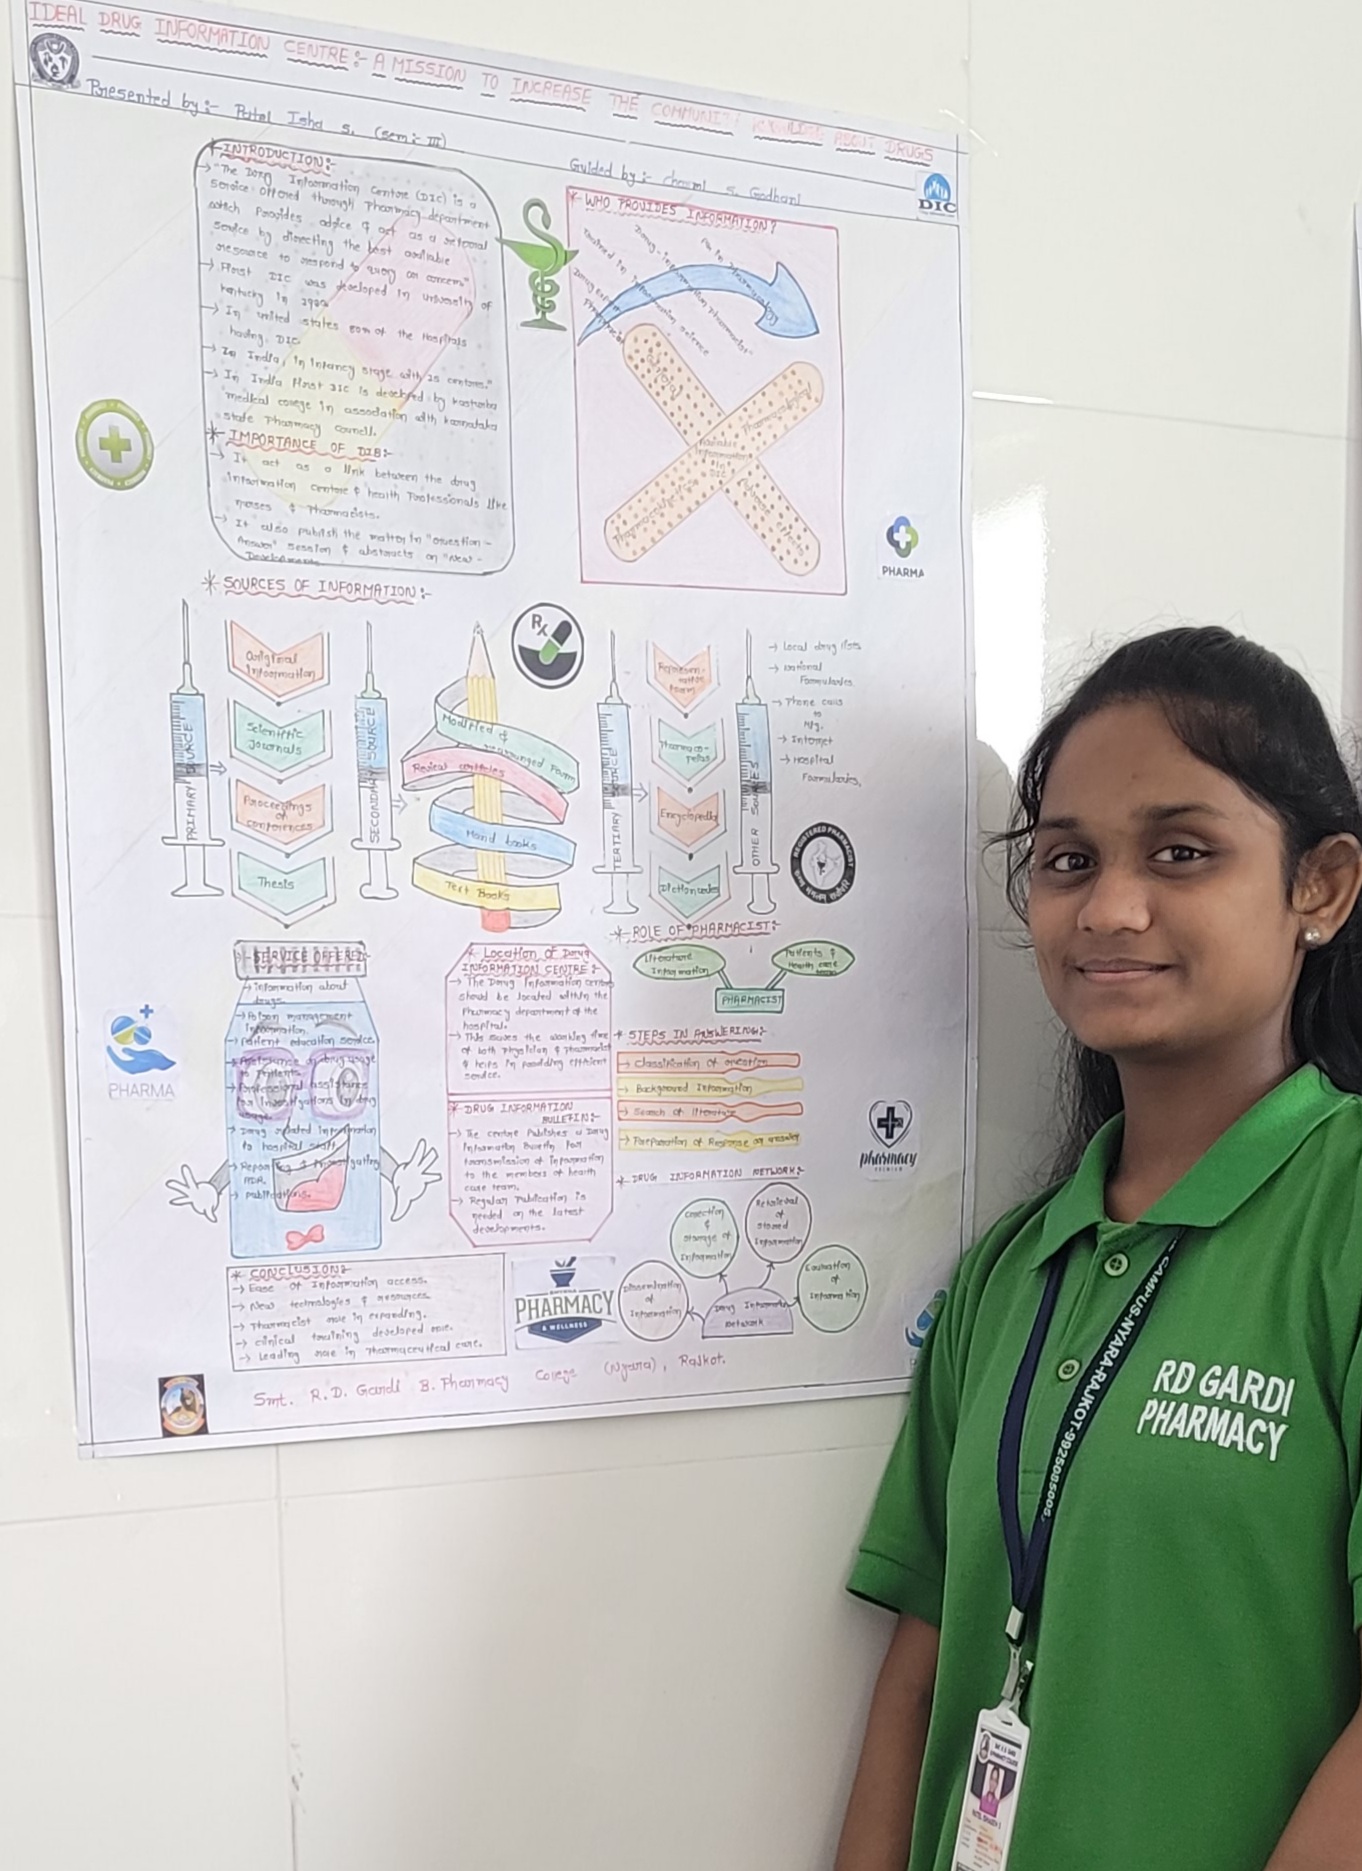 IDEAL DRUG INFORMATION CENTRE:- A MISSION TO INCREASE THE ABOUT DRUGS
Presented by:- Patel Isha S. (sem:- III)
Guided by:- S. Godhani
DIC
* INTRODUCTION:-
→ "The Drug Information Centre (DIC) is a
service offered through Pharmacy department
which Provides advice & act as a referal
service by directing the best available
resource to respond to query or concern."
→ First DIC was developed in University of
kentucky in
→ In united states 80% of the Hospitals
having DIC
→ In India, in infancy stage with 25 centres."
→ In India First DIC is developed by Kasturba
medical college in association with karnataka
state Pharmacy council.
* IMPORTANCE OF DIB:-
→ It act as a link between the drug
Information centre & health Professionals like
nurses & Pharmacists.
→ It also publish the matter in "Question-
Answer" session & abstracts on "New-
Developments
* WHO PROVIDES INFORMATION?
Trained in Information science
Drug-information Pharmacist"
Pharmaceutical
Adverse effects
PHARMA
* SOURCES OF INFORMATION:-
PRIMARY SOURCE
Original
Information
Scientific
Journals
Proceedings
of
conferences
Thesis
SECONDARY SOURCE
Modified &
rearranged Form
articles
Hand books
Text Books
Rx
TERTIARY SOURCE
Encyclopedia
Dictionaries
OTHER SOURCES
→ Local drug lists
→ National
Formularies
→ Phone calls
to
Mfg.
→ Internet
→ Hospital
Formularies.
REGISTERED PHARMACIST
* SERVICE OFFERED:-
→ Information about
drugs.
→ Poison management
information.
→ Patient education service.
→ Assistance in drug usage
to Patients.
→ Professional assistance
for investigations in drug
usage.
→ Drug related information
to hospital staff
→ Reporting & Investigating
ADR.
→ Publications.
* Location of Drug
INFORMATION CENTRE:-
→ The Drug Information centre
should be located within the
Pharmacy department of the
hospital.
→ This saves the working time
of both Physician & Pharmacist
& helps in providing efficient
service.
* DRUG INFORMATION
BULLETIN:-
→ The centre Publishes a Drug
Information Bulletin for
transmission of information
to the members of health
care team.
→ Regular Publication is
needed on the latest
developments.
* ROLE OF PHARMACIST:-
Literature
Information
Patients &
Health care
PHARMACIST
* STEPS IN ANSWERING:-
→ Classification of question
→ Background Information
→ Search of literature
→ Preparation of Response or answer
* DRUG INFORMATION NETWORK:-
Dissemination
of
Information
Collection
&
Storage of
Information
Retrieval
of
Stored
Information
Evaluation
of
Information
Drug Information
Network
PHARMA
pharmacy
* CONCLUSION:-
→ Ease of Information access.
→ New technologies & resources.
→ Pharmacist role in expanding.
→ clinical training developed role.
→ Leading role in Pharmaceutical care.
PHARMACY
& WELLNESS
Smt. R.D. Gardi B. Pharmacy College (Nyara), Rajkot.
RD GARDI
PHARMACY
CAMPUS-NYARA-RAJKOT-9925085005